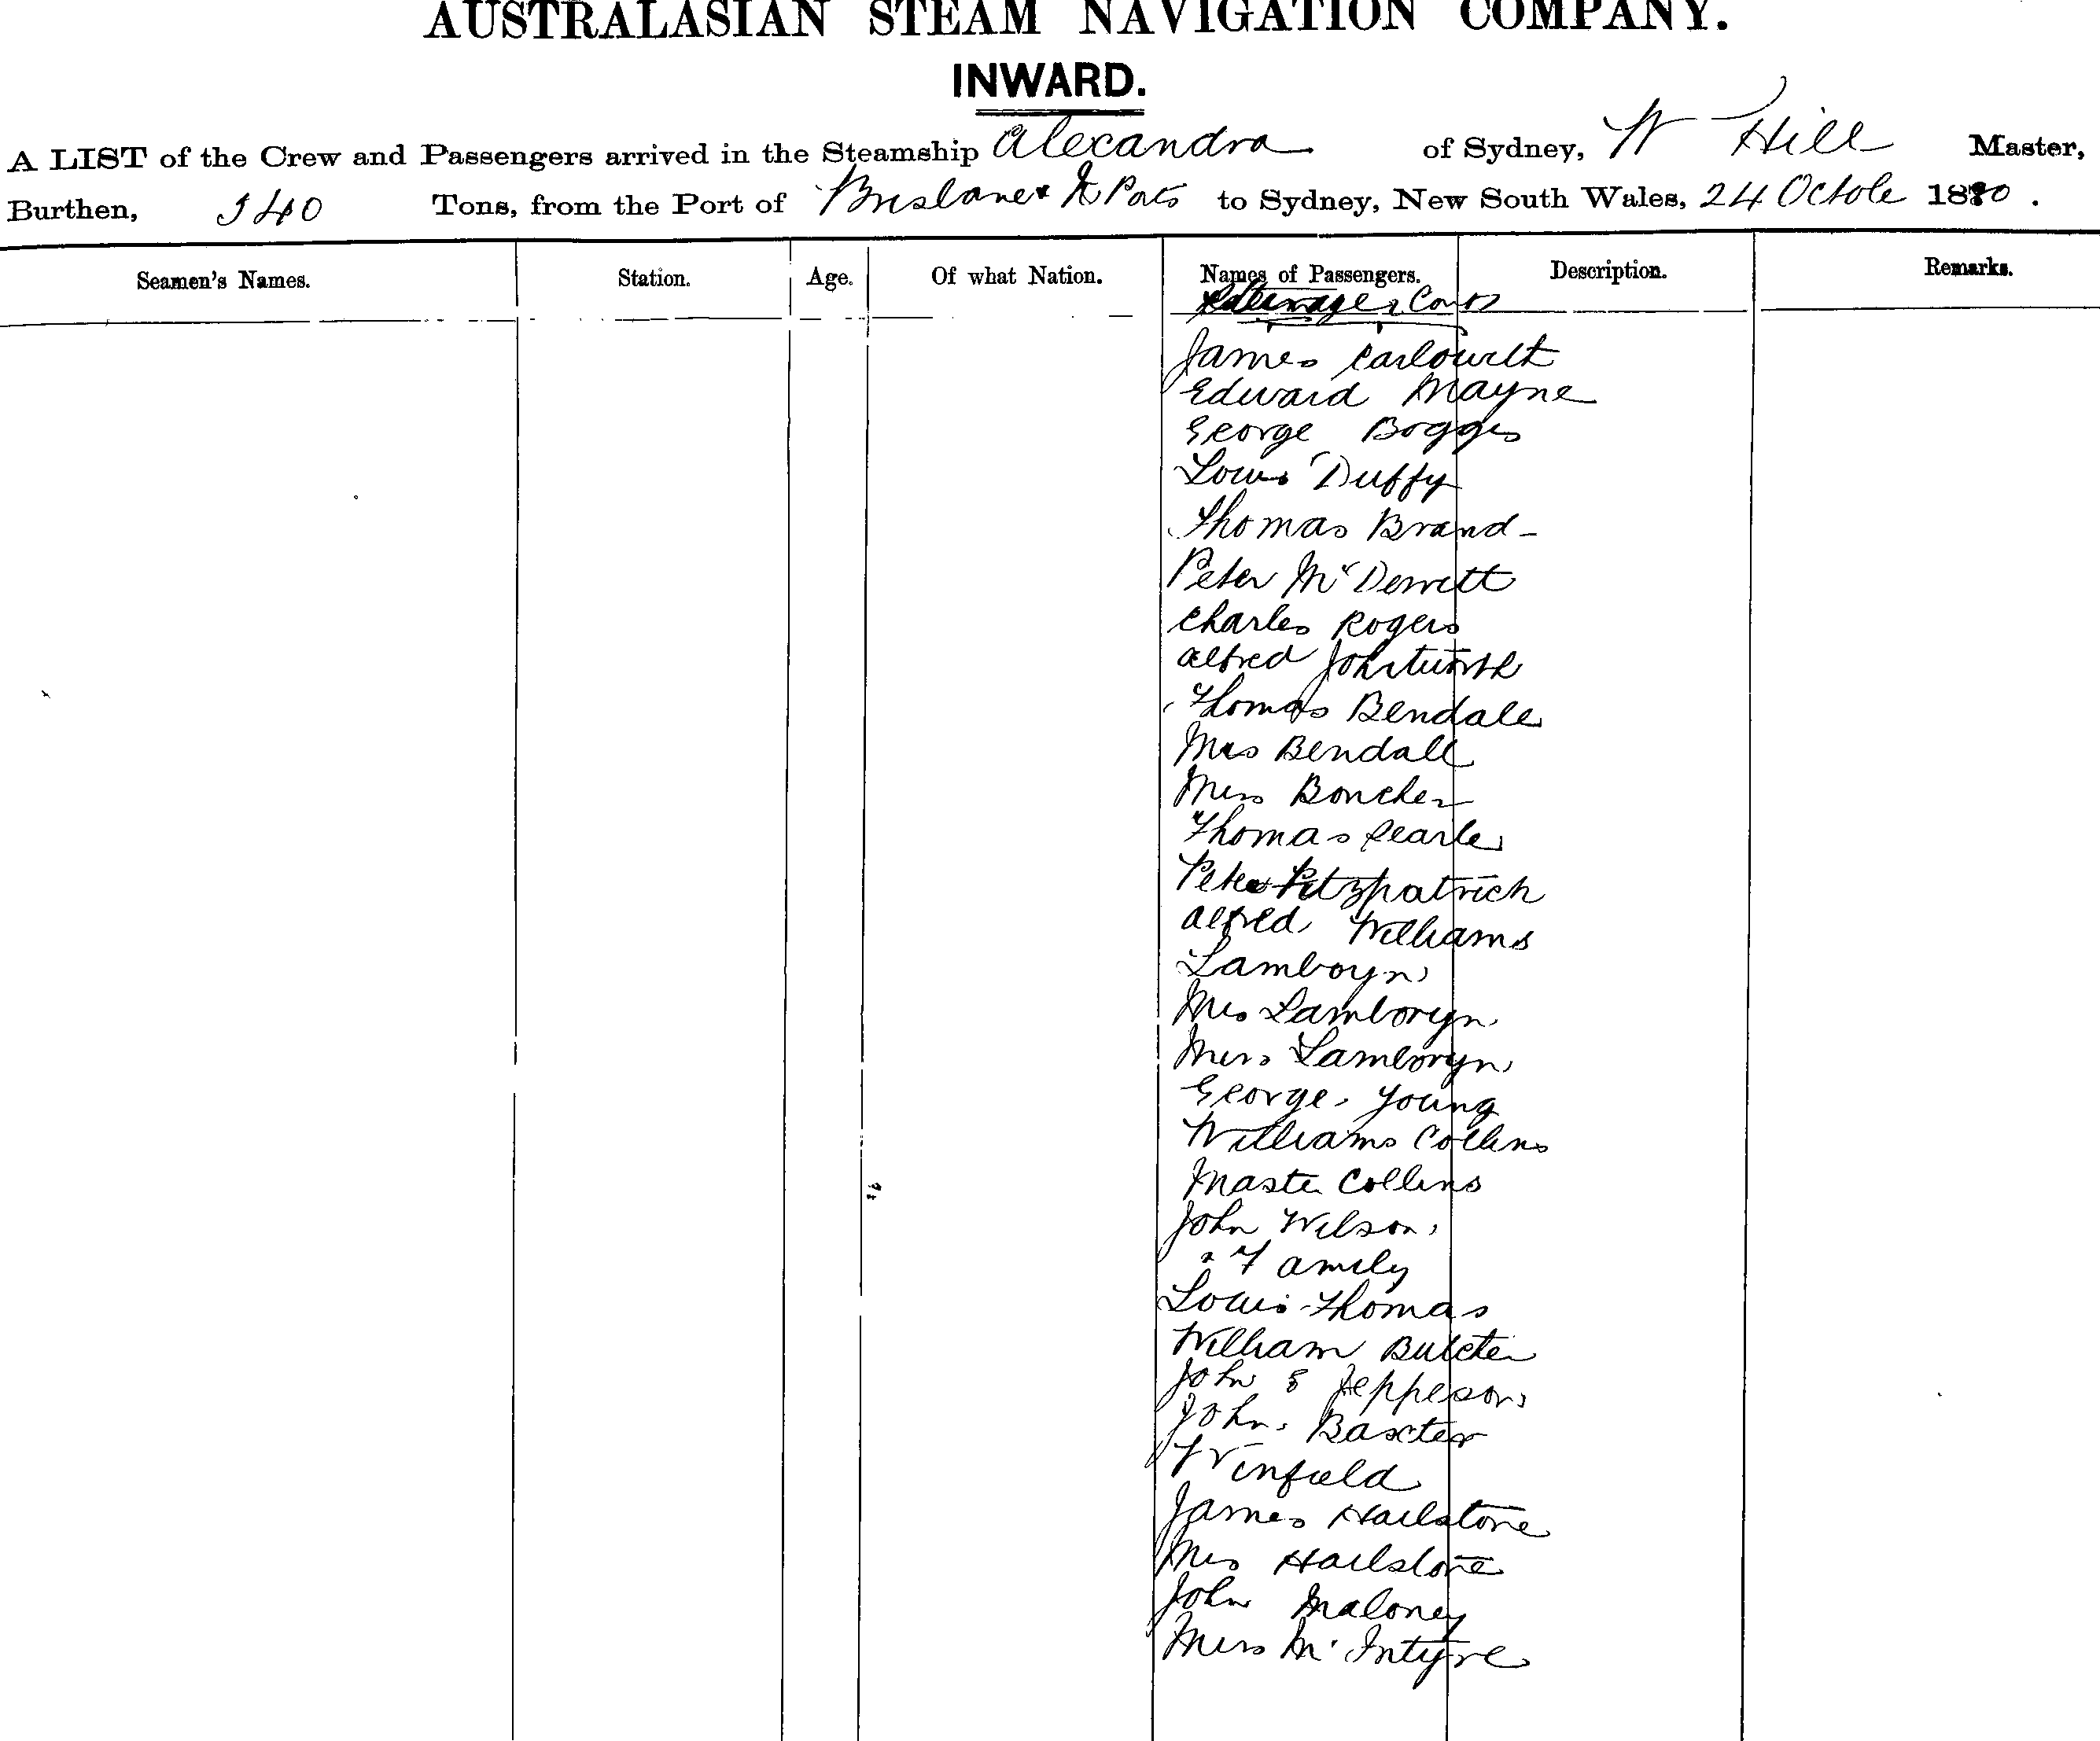 AUSTRALASIAN STEAM NAVIGATION COMPANY.
INWARD.
A LIST of the Crew and Passengers arrived in the Steamship Alexandra of Sydney, W Hill Master,
Burthen, 540 Tons, from the Port of Brisbane & N Ports to Sydney, New South Wales, 24 Octobe 1880.
Seamen's Names. Station. Age. Of what Nation. Names of Passengers. Description. Remarks.
Steerage Contd
James
Edward Mayne
George Boggs
Louis Duffy
Thomas Brand
Peter McDermott
Charles Rogers
Alfred
Thomas Bendale
Mrs Bendall
Miss Boucher
Thomas Searle
Peter Fitzpatrick
Alfred Williams
Lamboyn
Mrs Lamboryn
Miss Lamboryn
George Young
Williams Collins
Maste Collins
John Wilson
& Family
Louis Thomas
William Butcher
John & Jeppeson
John Baxter
Winfield
James Hailstone
Mrs Hailstone
John Maloney
Miss McIntyre